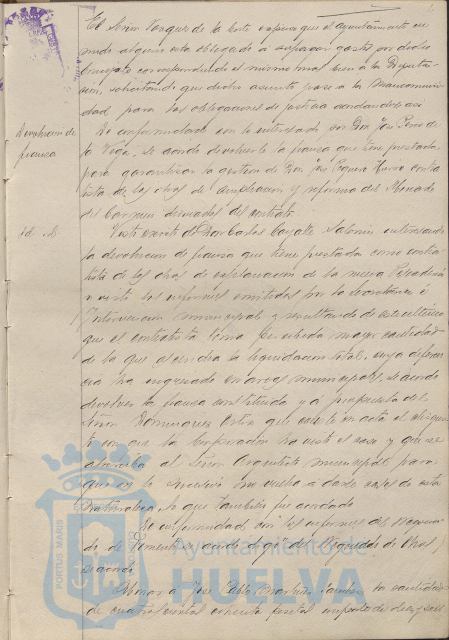 El Señor Vazquez de la Corte expone que el Ayuntamiento en
modo alguno está obligado a sufragar gastos por dicho
concepto correspondiendole el mismo mas bien a la Diputa-
ción, solicitando que dicho asunto pase a la Mancomuni-
dad para las obligaciones de justicia acordandose así
Devolucion de
fianza
De conformidad con lo interesado por Don José Pérez de
la Vega, se acordó devolverle la fianza que tiene prestada
para garantizar la gestion de Don José contra
tista de las obras de ampliacion y reforma del Mercado
del Carmen derivadas del contrato.
Id. id.
Visto escrito de Don Carlos interesando
la devolucion de fianza que tiene prestada como contra-
tista de las obras de explanación de la nueva Pescaderia
y visto los informes emitidos por la Secretaria é
Intervencion Municipal y resultando de este ultimo
que el contratista tenia percibida mayor cantidad
de la que ascendia la liquidacion total, cuya diferen
cia ha ingresado en arcas municipales, se acordó
devolver la fianza constituida y a propuesta del
Señor Dominguez que conste en acta el disgus-
to con que la Corporacion ha visto el caso y que se
al Señor Arquitecto municipal para
que en lo sucesivo no vuelva a darse casos de esta
naturaleza, lo que tambien fue acordado.
De conformidad con los informes del Negocia-
do de Fomento de Obras
se acordó
Abonar a José Pablo Martin la cantidad
de cuatrocientas cincuenta pesetas importe de
PORTUS MARIS
Ayuntamiento de
HUELVA